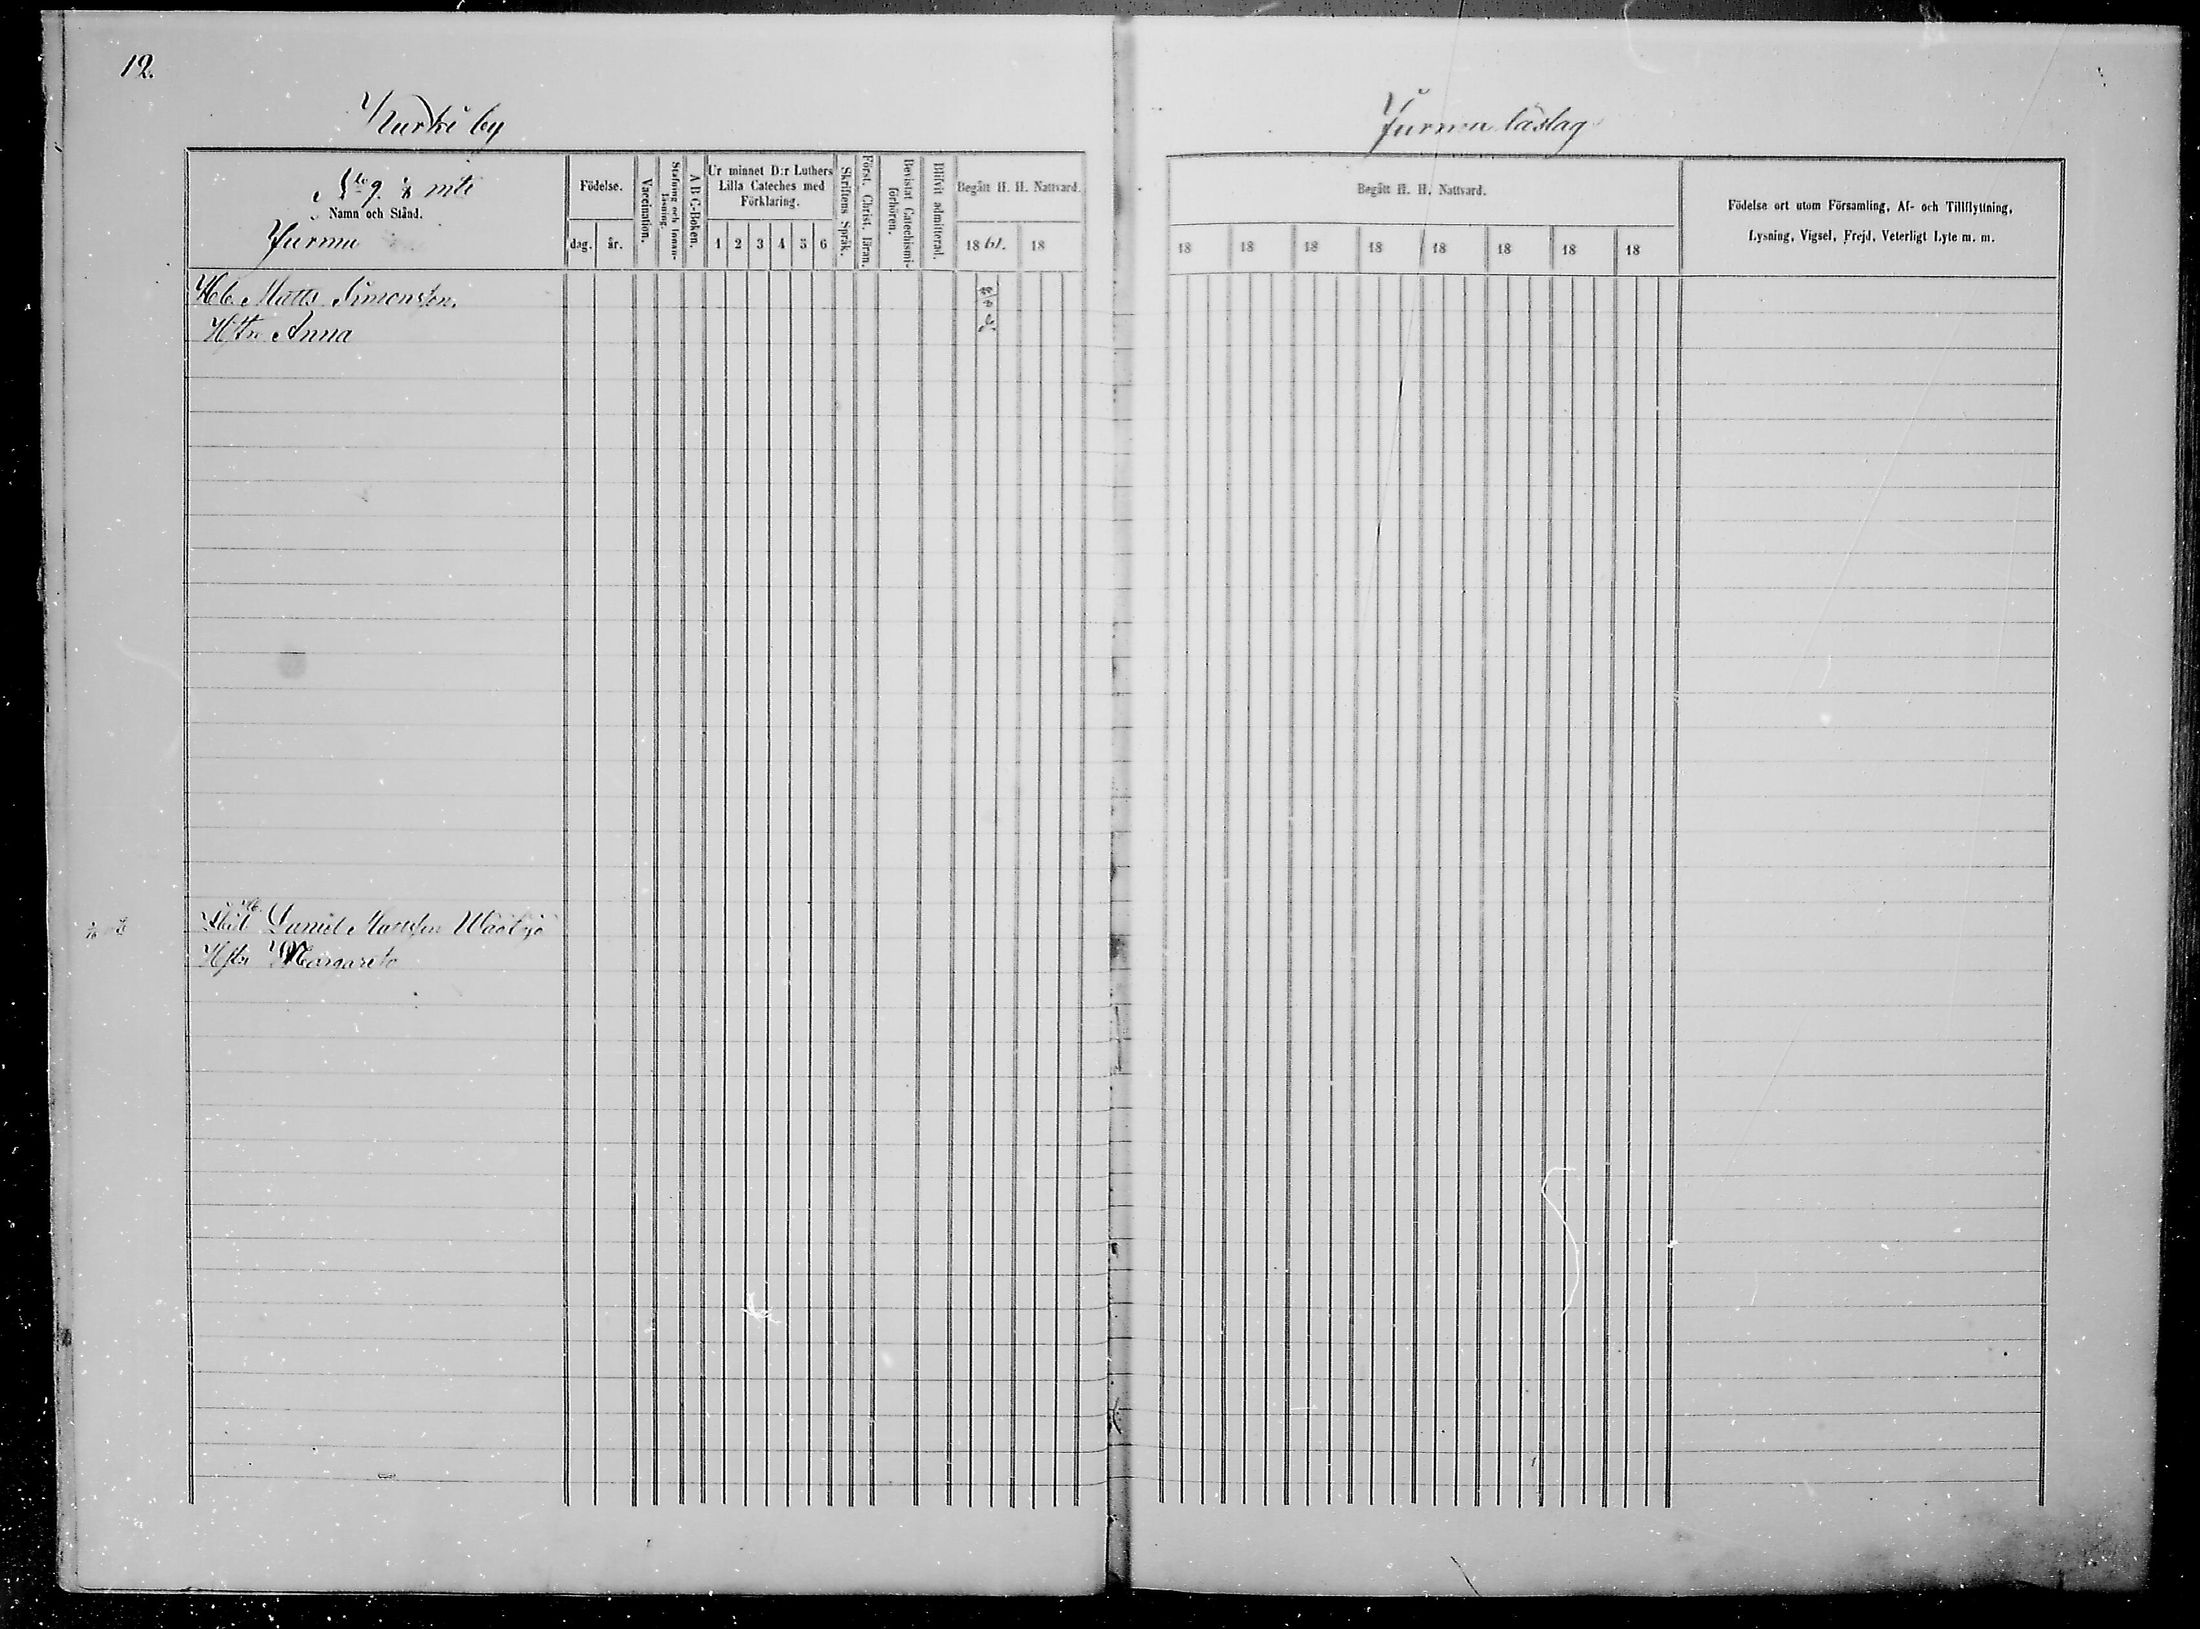 12.
Kurki by
No 9. 1/8 mtl
Namn och Stånd.
Jurmu
Födelse.
dag. år.
Vaccination.
Stafning och Innanläsning.
A B C-Boken.
Ur minnet D:r Luthers
Lilla Cateches med
Förklaring.
1 2 3 4 5 6
Skriftens Språk.
Först. Christ. läran.
Bevistat Catechismi-
förhören.
Blifvit admitterad.
Begått H. H. Nattvard.
18 61. 18
Hb. Matts Simonsson.
Hstr Anna
Daniel Mattsson
Hstr Margareta
Jurmu läslag
Begått H. H. Nattvard.
18 18 18 18 18 18 18 18
Födelse ort utom Församling, Af- och Tillflyttning,
Lysning, Vigsel, Frejd, Veterligt Lyte m. m.